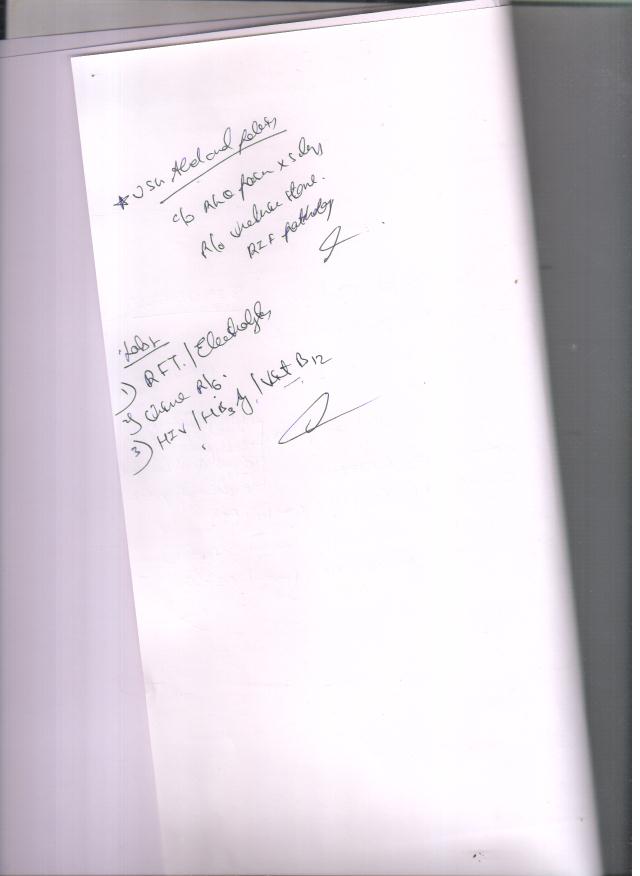 * USG Abd and pelvis
c/o RLQ pain x 5 days
R/o ureteric stone.
RIF pathology
Labs
1) RFT / Electrolytes
2) Urine R/o.
3) HIV / HBsAg / Vit B12